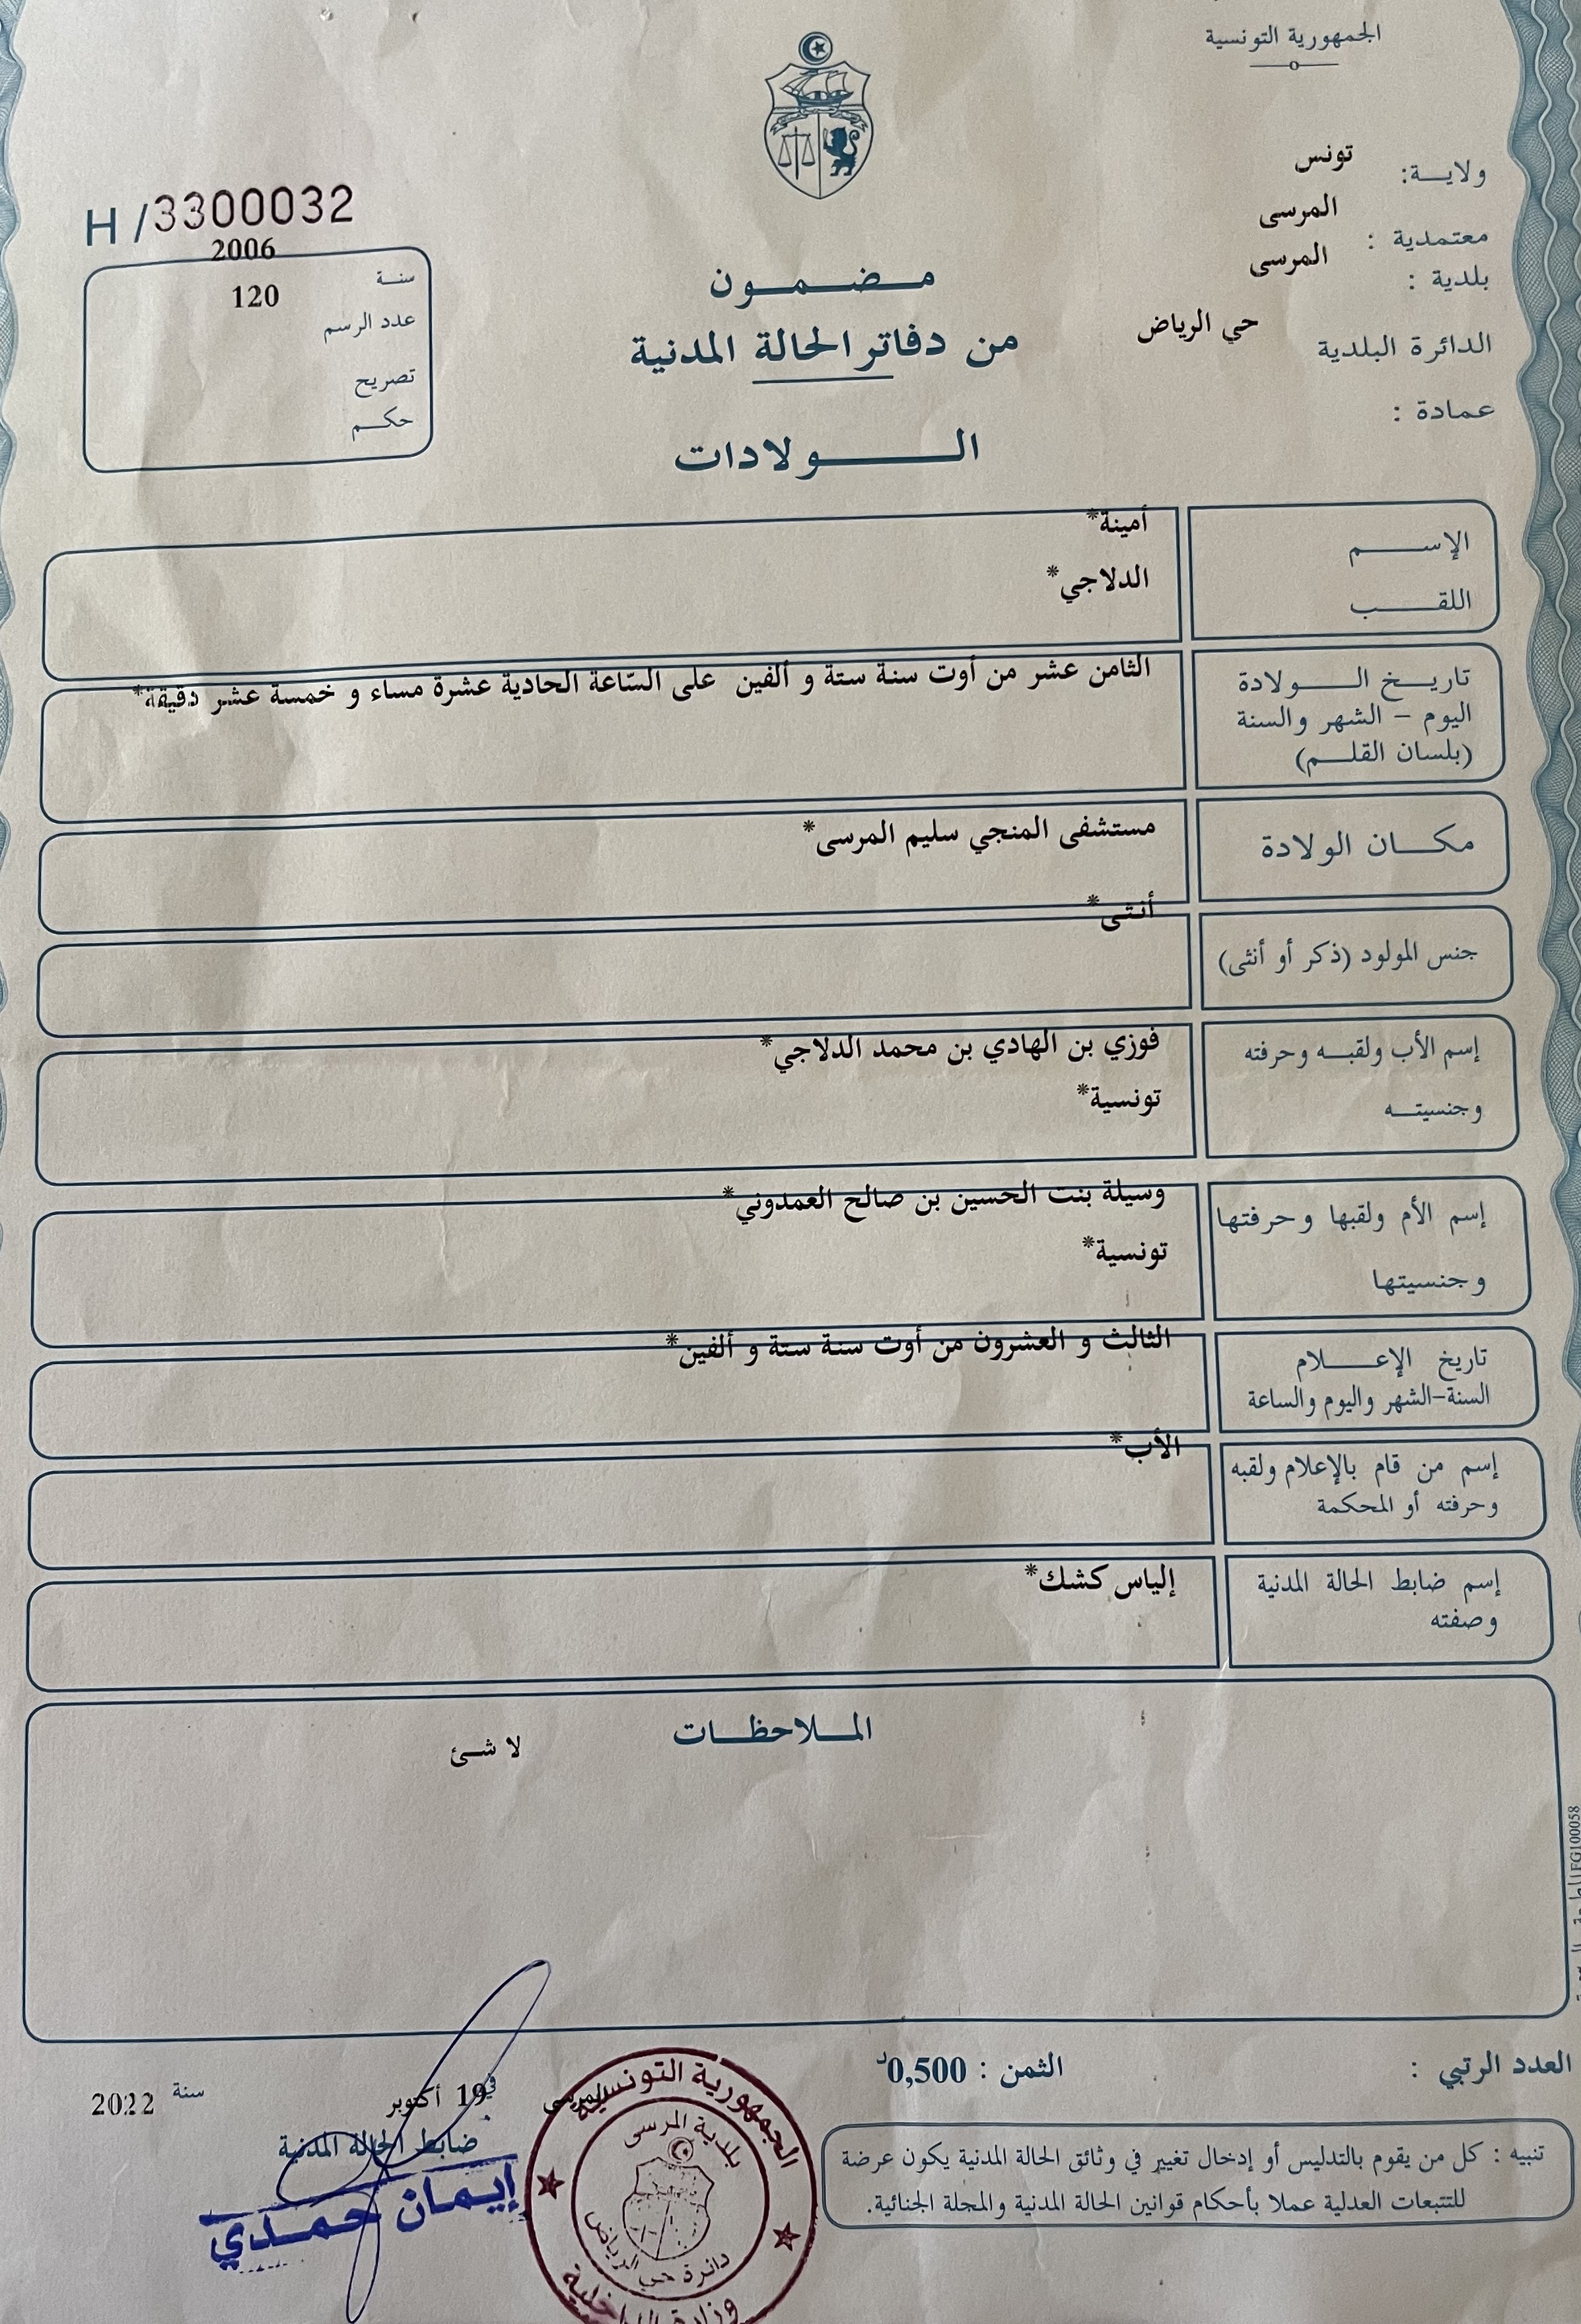 الجمهورية التونسية
ولايـــة: تونس
معتمدية : المرسى
بلدية : المرسى
الدائرة البلدية حي الرياض
عمادة :
H /3300032
سنـة 2006
عدد الرسم 120
تصريح
حكـــم
مــضــمــون
من دفاتر الحالة المدنية
الــــولادات
الإســـــم أمينة*
اللقـــــب الدلاجي*
تاريـــخ الــــولادة الثامن عشر من أوت سنة ستة و ألفين على السّاعة الحادية عشرة مساء و خمسة عشر دقيقة*
اليوم – الشهر والسنة
(بلسان القلـــم)
مكـــان الولادة مستشفى المنجي سليم المرسى*
جنس المولود (ذكر أو أنثى) أنثى*
إسم الأب ولقبـــه وحرفته فوزي بن الهادي بن محمد الدلاجي*
وجنسيتـــه تونسية*
إسم الأم ولقبها وحرفتها وسيلة بنت الحسين بن صالح العمدوني*
وجنسيتها تونسية*
تاريخ الإعــــلام الثالث و العشرون من أوت سنة ستة و ألفين*
السنة–الشهر واليوم والساعة
إسم من قام بالإعلام ولقبه الأب*
وحرفته أو المحكمة
إسم ضابط الحالة المدنية إلياس كشك*
وصفته
المــلاحظــات
لا شئ
العدد الرتبي :
الثمن : 0,500د
المرسى في 19 أكتوبر سنة 2022
ضابط الحالة المدنية
إيمـان حمـدي
الجمهورية التونسية
بلدية المرسى
دائرة حي الرياض
وزارة الداخلية
تنبيه : كل من يقوم بالتدليس أو إدخال تغيير في وثائق الحالة المدنية يكون عرضة
للتتبعات العدلية عملا بأحكام قوانين الحالة المدنية والمجلة الجنائية.
FG100058